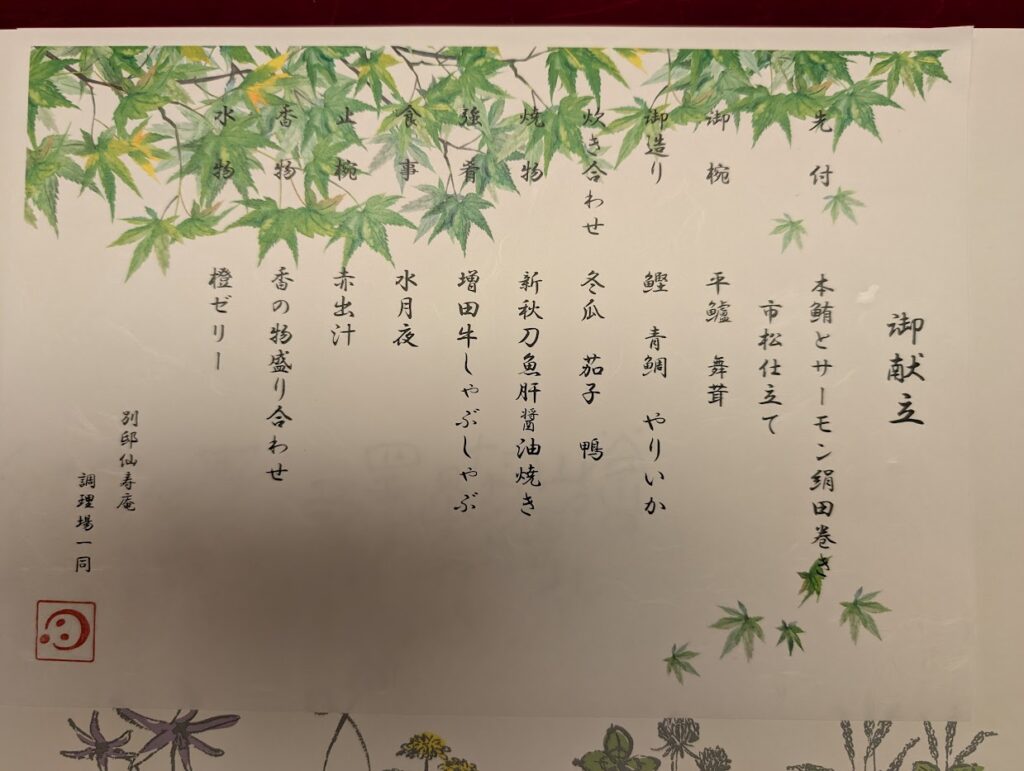 御献立
先付 本鮪とサーモン絹田巻き
市松仕立て
御椀 平鱸 舞茸
御造り 鰹 青鯛 やりいか
炊き合わせ 冬瓜 茄子 鴨
焼物 新秋刀魚肝醤油焼き
強肴 増田牛しゃぶしゃぶ
食事 水月夜
止椀 赤出汁
香物 香の物盛り合わせ
水物 橙ゼリー
別邸仙寿庵
調理場一同